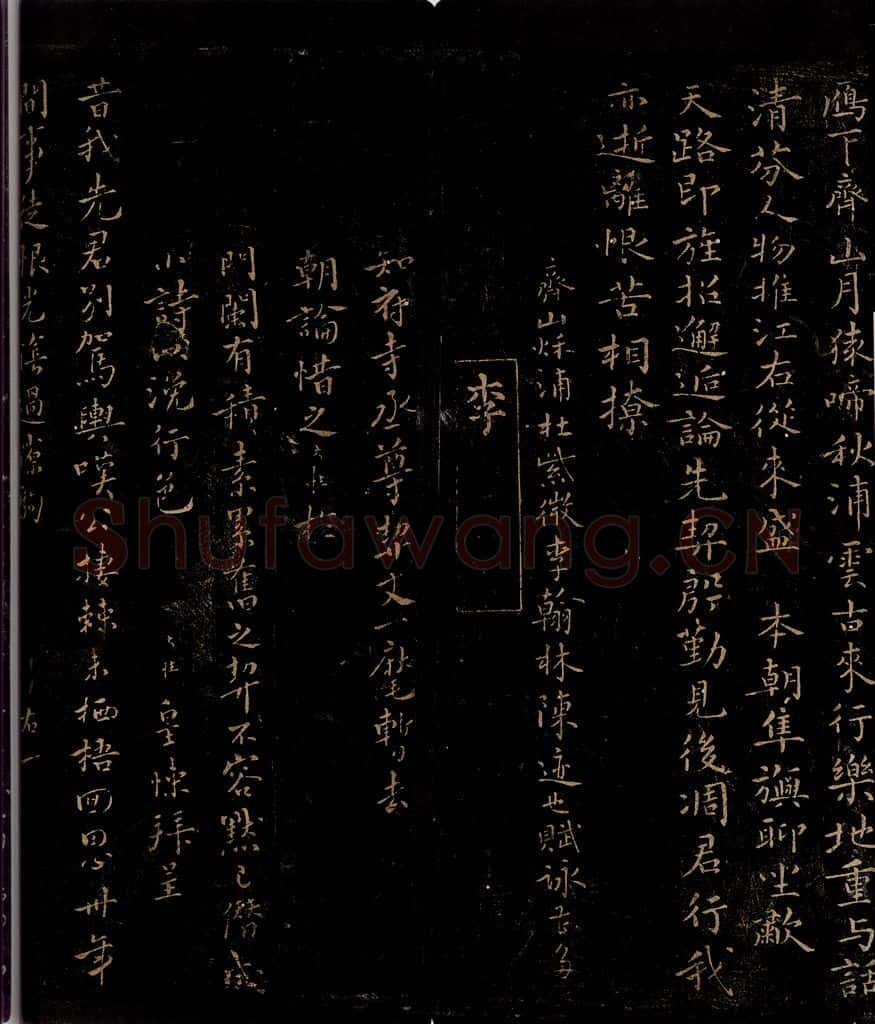 鴈下齊山月猿啼秋浦雲古來行樂地重与話
清芬人物推江右從來盛 本朝隼旟聊坐歗
天路即旌招邂逅論先契慇懃見後凋君行我
亦逝離恨苦相撩
齊山秋浦杜紫微李翰林陳迹也賦詠甚多
李
知府寺丞尊契丈一麾暫去
朝論惜之
門闌有積素累舊之契不容默已僭成
小詩以浼行色
皇悚拜呈
昔我先君別駕輿嘆公棲棘未栖梧回思卅年
間事徒恨光陰過隙駒
右一
Shufawang.CN